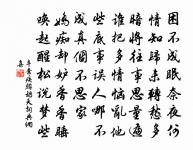 困不成眠奈夜何
情知歸未轉愁多
暗將往事思量遍
誰把多情惱亂他
些底事誤人哪不
成真個不思家
嬌痴卻妒香香睡
喚起醒松說夢些